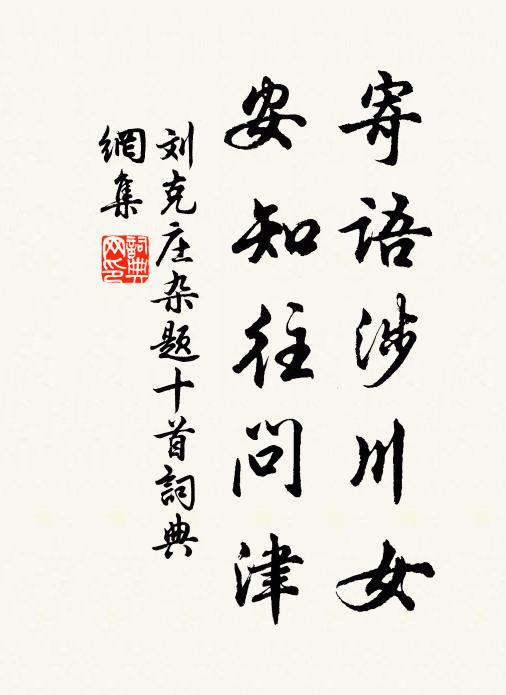 寄語涉川女
安知往問津
刘克庄杂题十首詞典
網集
詞典网印